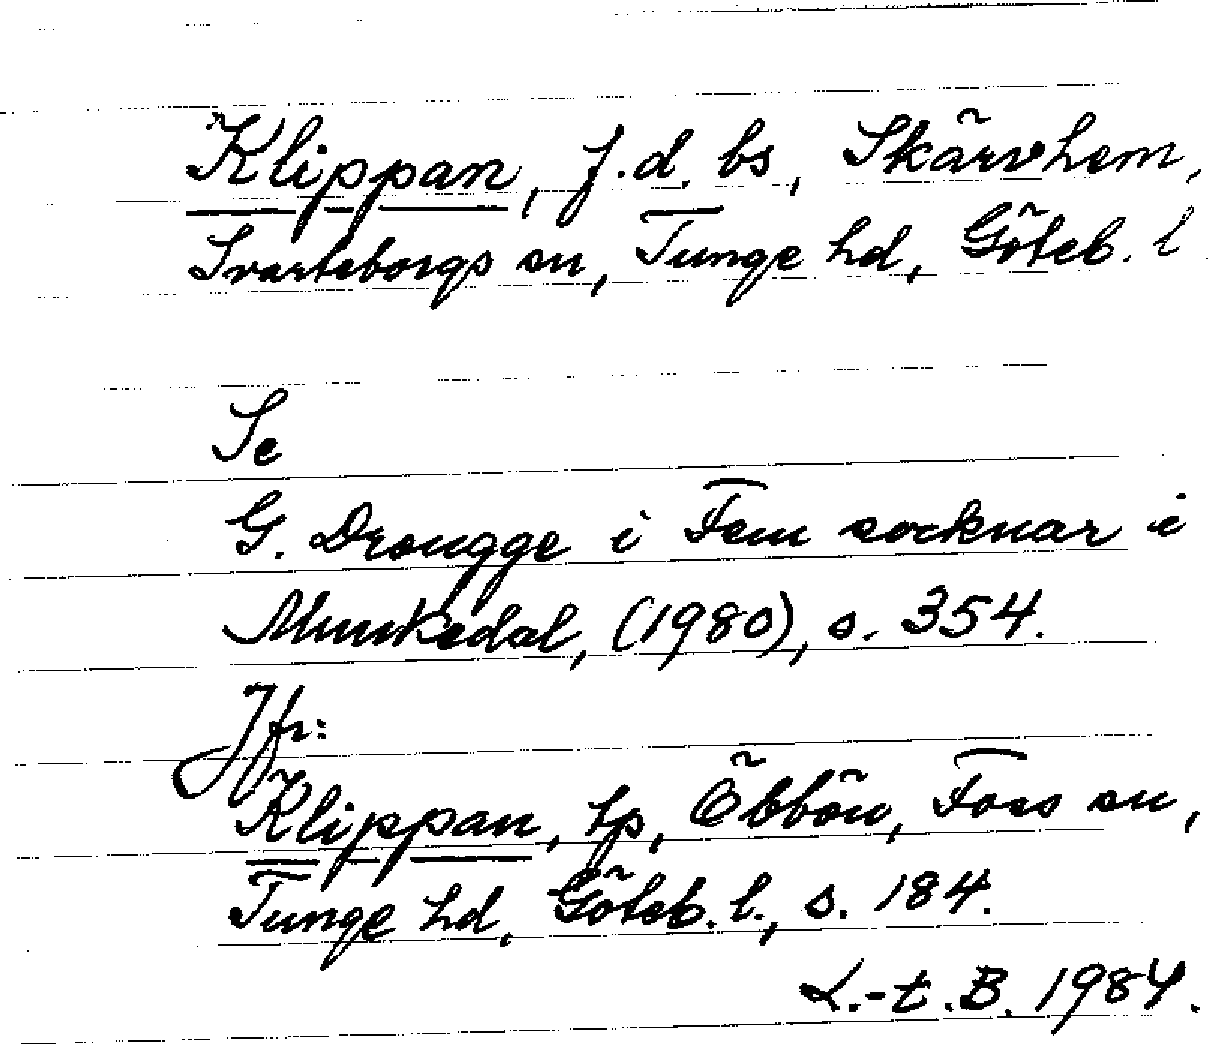 Klippan, f.d. bs, Skärvhem,
Svarteborgs sn, Tunge hd, Göteb. l
Se
G. Drougge i Fem socknar i
Munkedal, (1980), s. 354.
Jfr:
Klippan, tp, Öbbön, Foss sn,
Tunge hd, Göteb. l., s. 184.
L.-t. B. 1984.